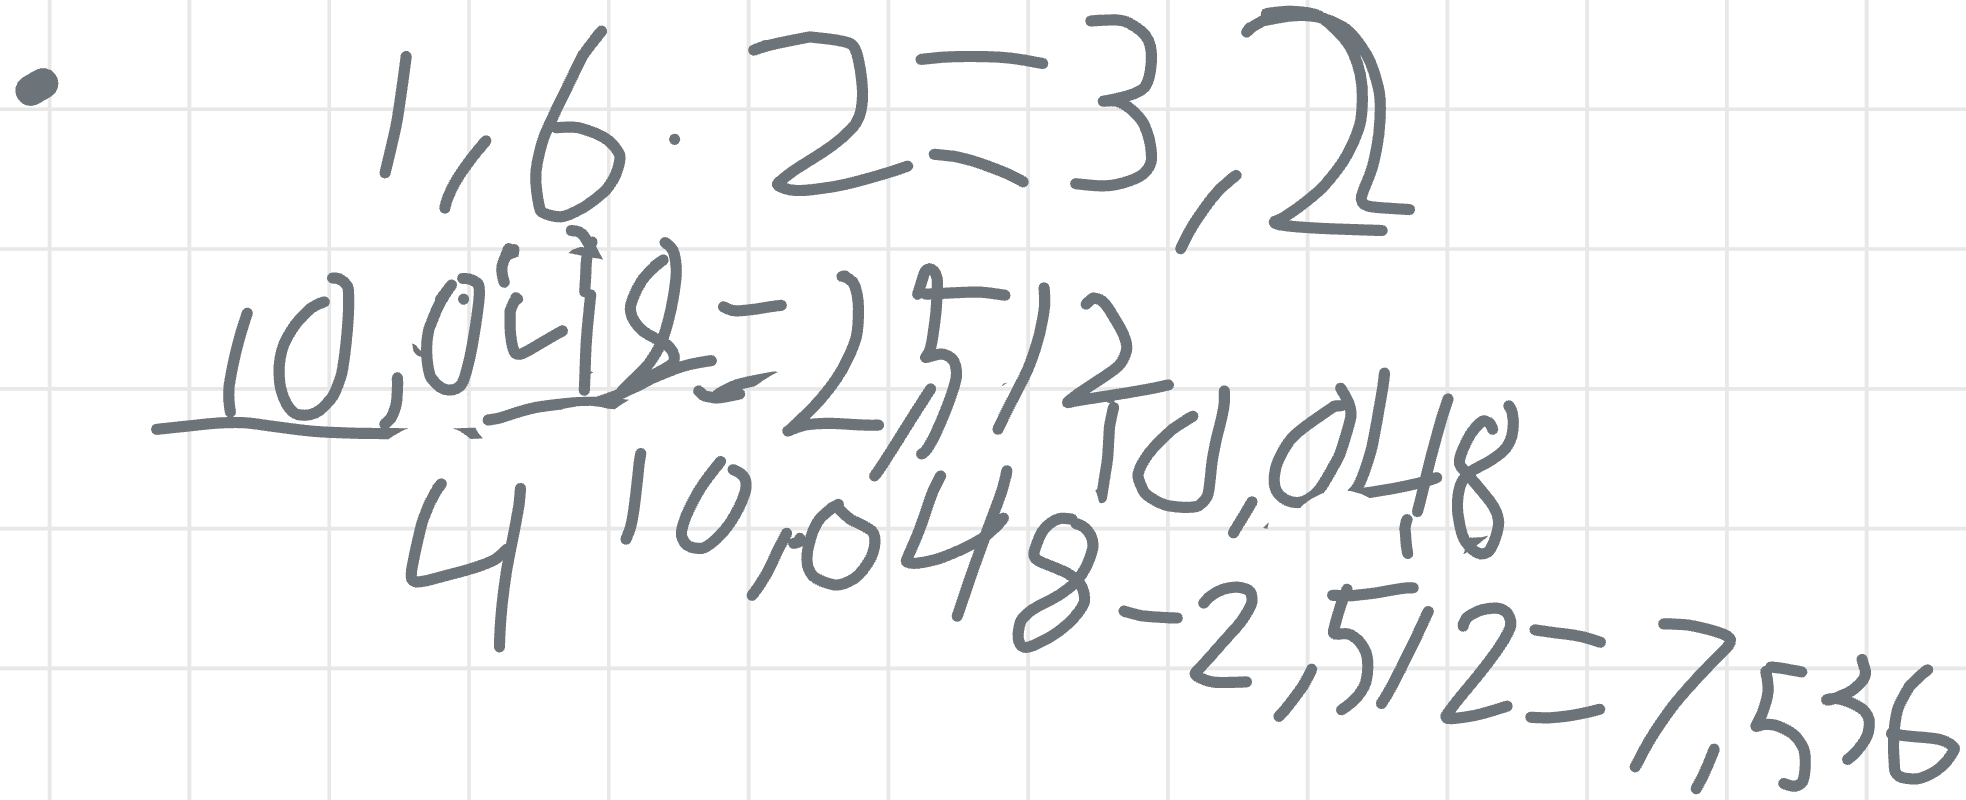 1,6 · 2 = 3,2
10,048 = 2,512
4
10,048
10,048 - 2,512 = 7,536